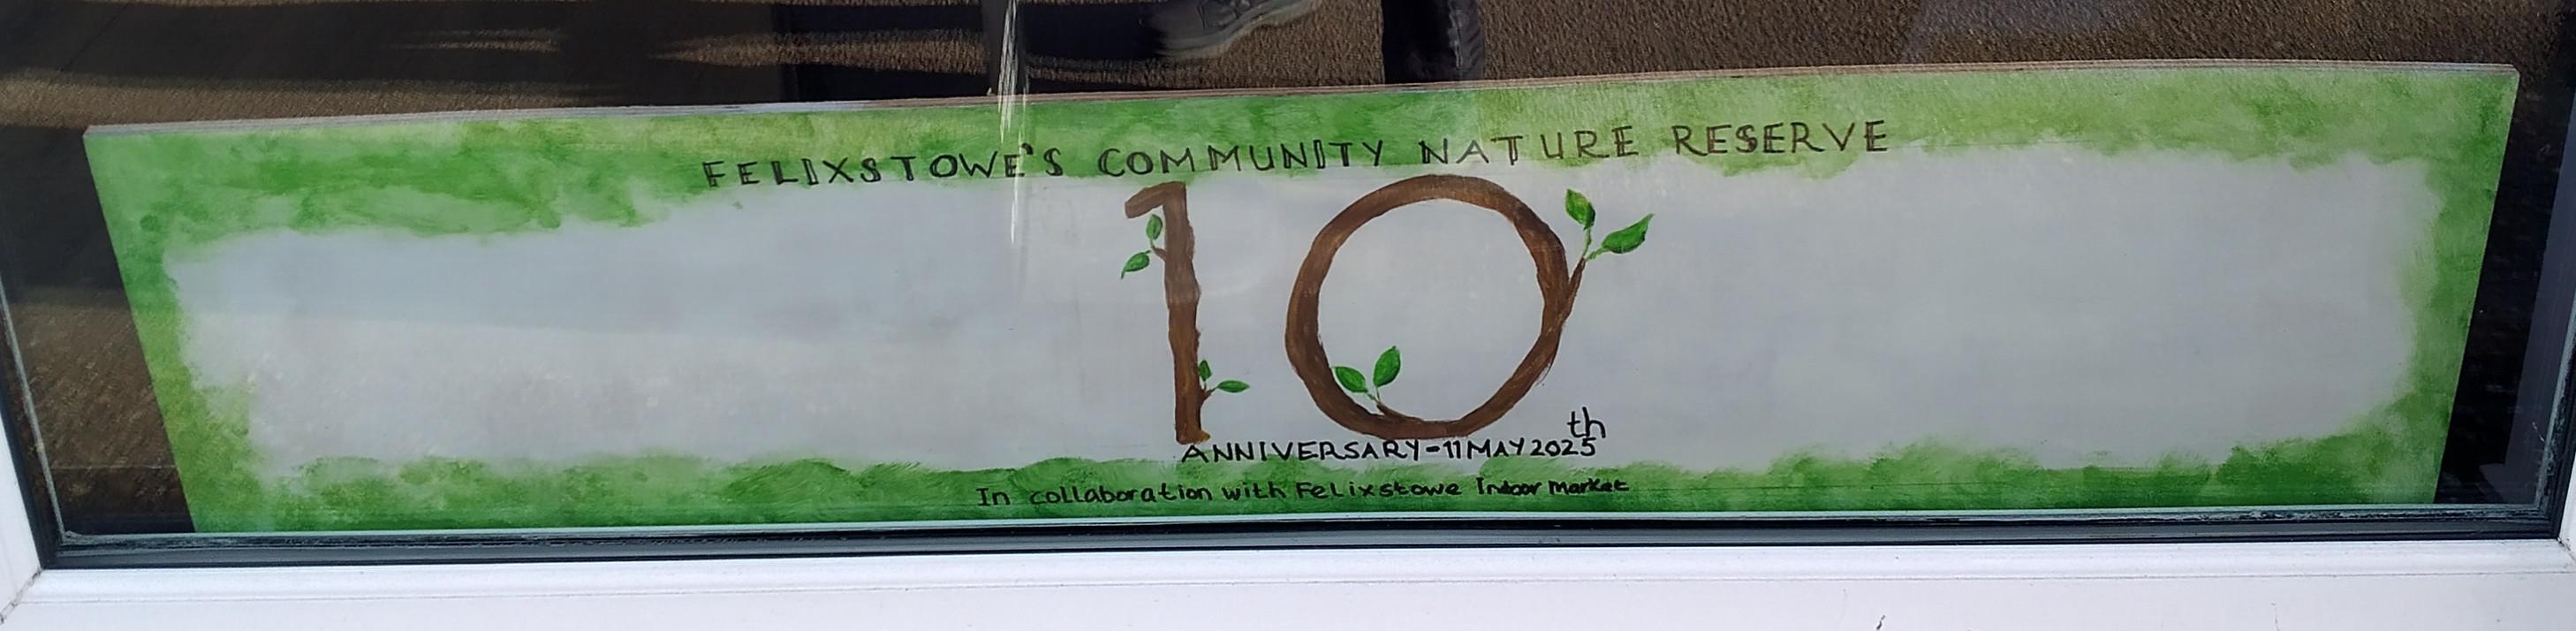 FELIXSTOWE'S COMMUNITY NATURE RESERVE
10th
ANNIVERSARY-11 MAY 2025
In collaboration with Felixstowe Indoor Market